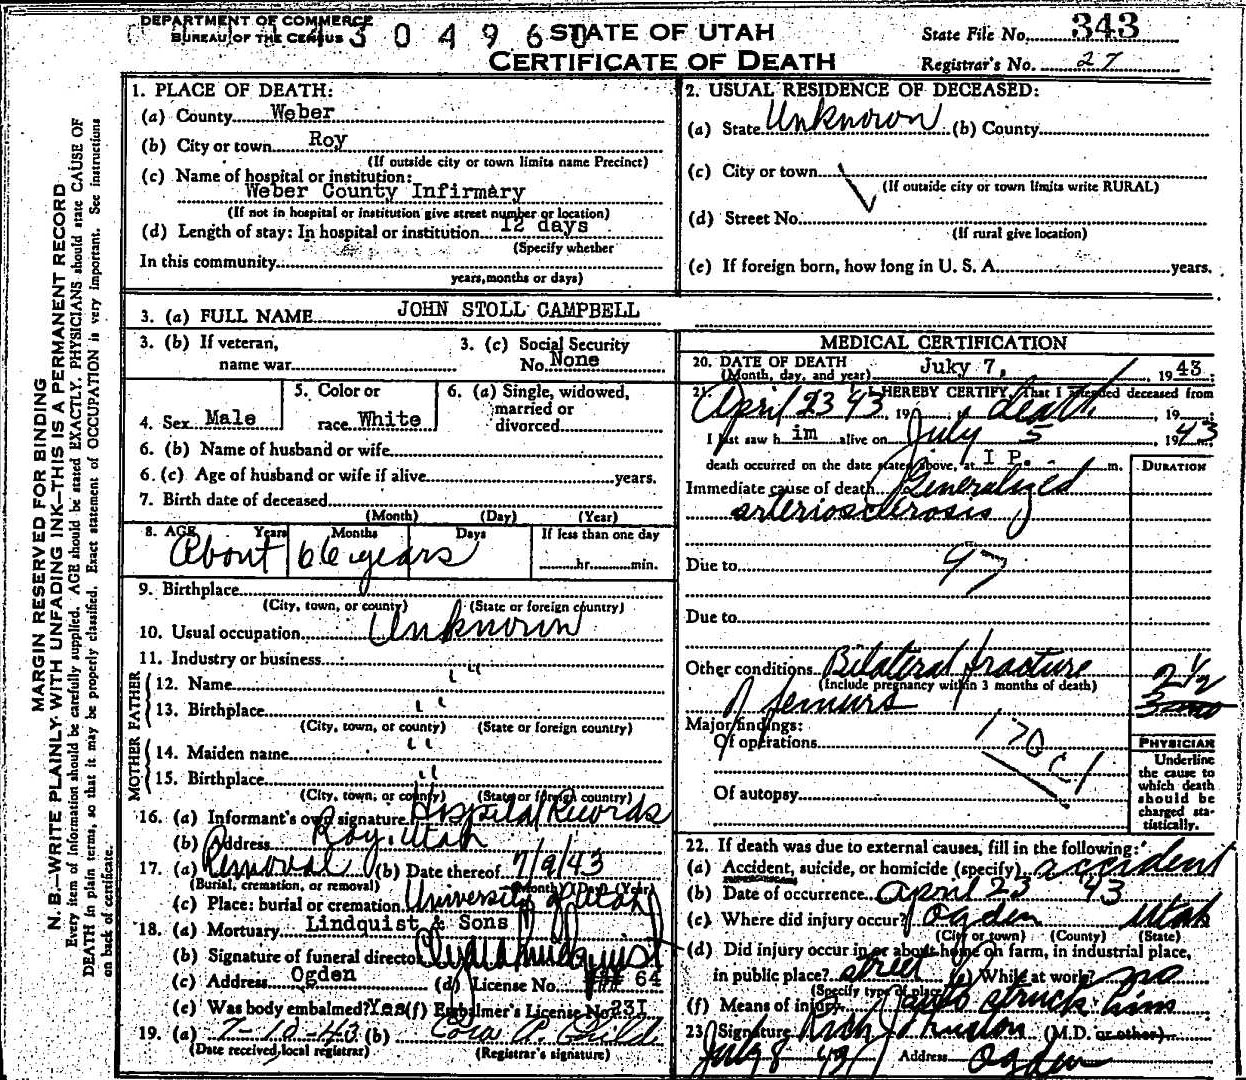 DEPARTMENT OF COMMERCE
BUREAU OF THE CENSUS
4304960
STATE OF UTAH
CERTIFICATE OF DEATH
State File No. 343
Registrar's No. 27
MARGIN RESERVED FOR BINDING
N. B.—WRITE PLAINLY WITH UNFADING INK—THIS IS A PERMANENT RECORD
Every item of information should be carefully supplied. AGE should be stated EXACTLY. PHYSICIANS should state CAUSE OF
DEATH in plain terms, so that it may be properly classified. Exact statement of OCCUPATION is very important. See instructions
on back of certificate.
1. PLACE OF DEATH:
(a) County Weber
(b) City or town Roy
(If outside city or town limits name Precinct)
(c) Name of hospital or institution:
Weber County Infirmary
(If not in hospital or institution give street number or location)
(d) Length of stay: In hospital or institution 12 days
(Specify whether
In this community
years, months or days)
2. USUAL RESIDENCE OF DECEASED:
(a) State Unknown (b) County
(c) City or town
(If outside city or town limits write RURAL)
(d) Street No.
(If rural give location)
(e) If foreign born, how long in U. S. A. years.
3. (a) FULL NAME JOHN STOLL CAMPBELL
3. (b) If veteran,
name war
3. (c) Social Security
No. None
4. Sex Male
5. Color or
race White
6. (a) Single, widowed,
married or
divorced
6. (b) Name of husband or wife
6. (c) Age of husband or wife if alive years.
7. Birth date of deceased
(Month) (Day) (Year)
8. AGE Years Months Days If less than one day
About 66 years hr. min.
9. Birthplace
(City, town, or county) (State or foreign country)
10. Usual occupation Unknown
11. Industry or business
FATHER
12. Name " "
13. Birthplace " "
(City, town, or county) (State or foreign country)
MOTHER
14. Maiden name " "
15. Birthplace " "
(City, town, or county) (State or foreign country)
16. (a) Informant's own signature Hospital Records
(b) Address Roy, Utah
17. (a) Removal (b) Date thereof 7/9/43
(Burial, cremation, or removal) (Month) (Day) (Year)
(c) Place: burial or cremation University of Utah
18. (a) Mortuary Lindquist & Sons
(b) Signature of funeral director Clyde Lindquist
(c) Address Ogden (d) License No. 64
(e) Was body embalmed? Yes (f) Embalmer's License No. 231
19. (a) 7-10-43 (b) Cora A. Guild
(Date received local registrar) (Registrar's signature)
MEDICAL CERTIFICATION
20. DATE OF DEATH
(Month, day, and year) Juky 7, 1943
21. I HEREBY CERTIFY, That I attended deceased from
April 23 43 19 death 19
I last saw h im alive on July 5 1943
death occurred on the date stated above, at I P. m.
DURATION
Immediate cause of death Generalized
arteriosclerosis
97
Due to
Due to
Other conditions Bilateral fracture
(Include pregnancy within 3 months of death)
of femurs
2 1/2
mo
Major findings:
Of operations
170 c1
Of autopsy
PHYSICIAN
Underline
the cause to
which death
should be
charged sta-
tistically.
22. If death was due to external causes, fill in the following:
(a) Accident, suicide, or homicide (specify) accident
(b) Date of occurrence April 23 43
(c) Where did injury occur? Ogden Utah
(City or town) (County) (State)
(d) Did injury occur in or about home on farm, in industrial place,
in public place? street (e) While at work? no
(Specify type of place)
(f) Means of injury auto struck him
23. Signature Rich Johnston (M.D. or other)
July 8 43 Address Ogden